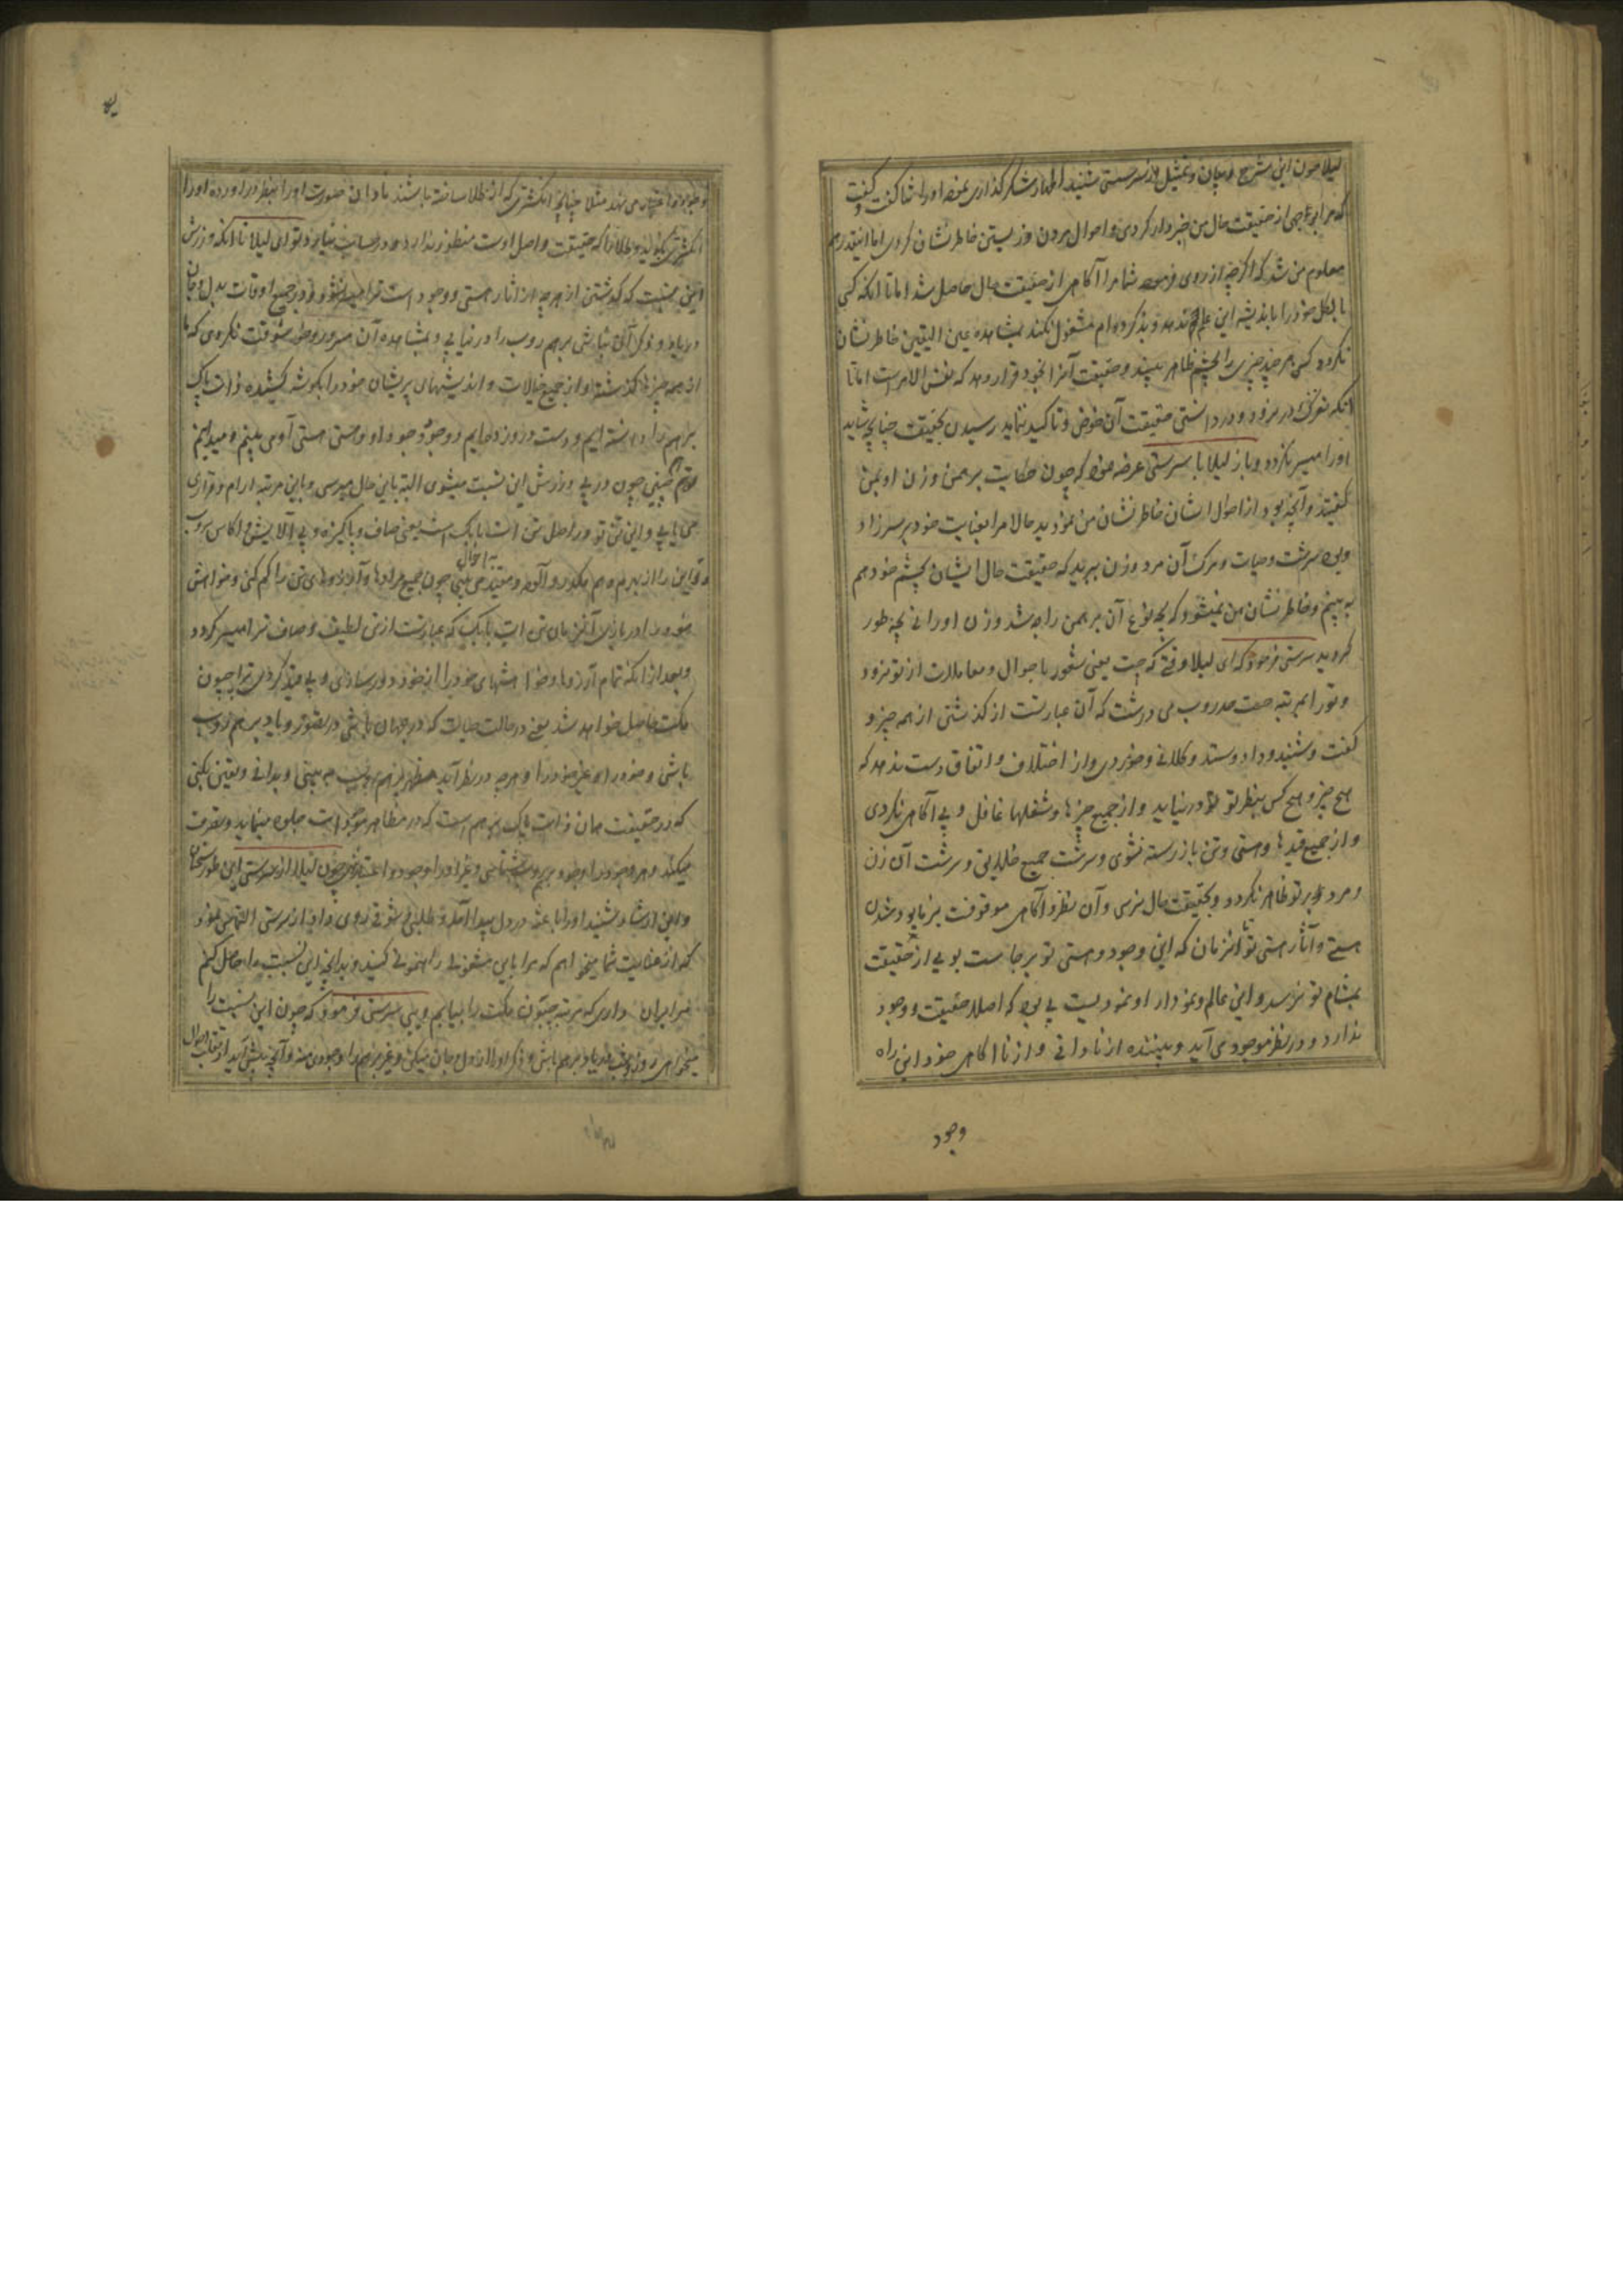 لیلا چون این شرح و بیان و تمثیل از سرستی شنید اظهار شکر گذاری نموده او را ثنا گفت و گفت
که مرا بوجهی از حقیقت حال من خبردار کردی و احوال مردن و زیستن خاطر نشان کردی اما اینقدر هم
معلوم من شد که اگرچه از روی فرموده شما مرا آگاهی از حقیقت حال حاصل شد اما تا آنکه کسی
بالکل خود را باندیشه این علم ندهد و بذکر دوام مشغول نکند بمشاهده عین الیقین خاطر نشان
نگردد کسی هر چند چیزی را بچشم ظاهر ببیند و حقیقت آنرا بخود قرار دهد که نفس الامر است اما تا
آنکه بفرک در نرود و در دانستن حقیقت آن خوض و تاکید ننماید رسیدن بحقیقت چنانچه شاید
او را میسر نگردد و باز لیلا با سرستی عرضه نمود که چون حکایت برهمن و زن او بمن
گفتید و آنچه بود از احوال ایشان خاطر نشان من نمودید حالا مرا بعنایت خود بر سر زاد
وبوم سرشت و حیات و مرگ آن مرد و زن ببرید که حقیقت حال ایشان بچشم خود هم
به بینم و خاطر نشان من بشود که بچه نوع آن برهمن راجه شد و زن او رانی بچه طور
گردید سرستی فرمود که ای لیلا وقتی که چت یعنی شعور باحوال و معاملات از تو نرود
و تو را بمرتبه صدروب می درشت که آن عبارتست از گذشتن از همه چیز و
گفت و شنید و داد و ستد و کلانی و خوردی و از اختلاف و اتفاق دست ندهد که
هیچ چیز و هیچ کس بنظر تو در نیاید و از جمیع چیزها و شغلها غافل و بی آگاهی نگردی
و از جمیع قیدها و هستی و تن باز رسته نشوی و سرشت جمیع خلایق و سرشت آن زن
و مرد بر تو ظاهر نگردد و بحقیقت حال نرسی و آن نظر و آگاهی موقوفت بر نابود شدن
هستی و آثار هستی تو تا آنزمان که این وجود و هستی تو برجاست بویی از حقیقت
بمشام تو نرسد و این عالم و نمودار او نمودیست بی بود که اصلا حقیقت و وجود
ندارد و در نظر موجود می آید و بیننده از نادانی و از نا آگاهی خود این راه
وجود
وجود و اعتبار می نهد مثلا چنانچه انگشتری که از طلا ساخته باشند نادان صورت او را بنظر در آورده او را
انگشتری بگوید و طلا را که حقیقت و اصل اوست منظور ندارد و در حساب نیارد و تو ای لیلا تا آنکه ورزش
این نسبت که گذشتن از هرچه از آثار هستی و وجود است ترا میسر نشود و در جمیع اوقات بدل و جان
در یاد و فکر آن نباشی برهم روپ را در نیابی و بمشاهده آن مسرور و خوشوقت نگردی که ما
از همه چیزها گذشته و از جمیع خیالات و اندیشهای پریشان خود را بگوشه کشیده ذات پاک
برهم را دانسته ایم و دست در او زده ایم و وجود را وجود او و هستی هستی او می بینم و میدانیم
تو هم چنین چون در پی ورزش این نسبت میشوی البته باین حال میرسی و باین مرتبه آرام و قرار
می یابی و این تن تو در اصل تن است یعنی صاف و پاکیزه و بی آلایش و اکاس روپ
و تو این را از بهر هم مکدر و آلوده و مقید می بینی چون جمیع مرادها و آرزوهای تن را کم کنی و خواهش
خود را دور باز آری آنزمان تن که عبارت از تن لطیف و صاف ترا میسر گردد
و بعد از آنکه تمام آرزوها و خواهشهای خود را از خود دور سازی و بی قید گردی ترا جیون
مکت حاصل خواهد شد یعنی در حالت حیات که در جهان باشی در تصور و یاد برهم روپ
باشی و خود را و غیر خود را و هرچه در نظر آید مظهر برهم روپ به بینی و بدانی و یقین بکنی
که در حقیقت همان ذات پاک برهم است که در مظاهر موجودات جلوه مینماید و تصرف
میکند و هر وجود را وجود برهم روپ بشناسی و غیر او را وجود و اعتبار ننهی چون لیلا از سرستی این طور سخنان
و این ارشاد بشنید او را باعثه در دل پیدا آمد و طلبی و شوقی روی داد از سرستی التماس نمود
که از عنایت شما میخواهم که مرا باین مشغولی راهنمونی کنید و بدانچه این نسبت را حاصل کنم
مرا بر آن داری که مرتبه جیون مکت را بیابم دیبی سرستی فرمود که چون این نسبت را
میخواهی روز و شب در یاد برهم باش و ذکر او را از دل و جان میکن و غیر برهم را وجودی منه و آنچه پیش آید از تعلقات احوال